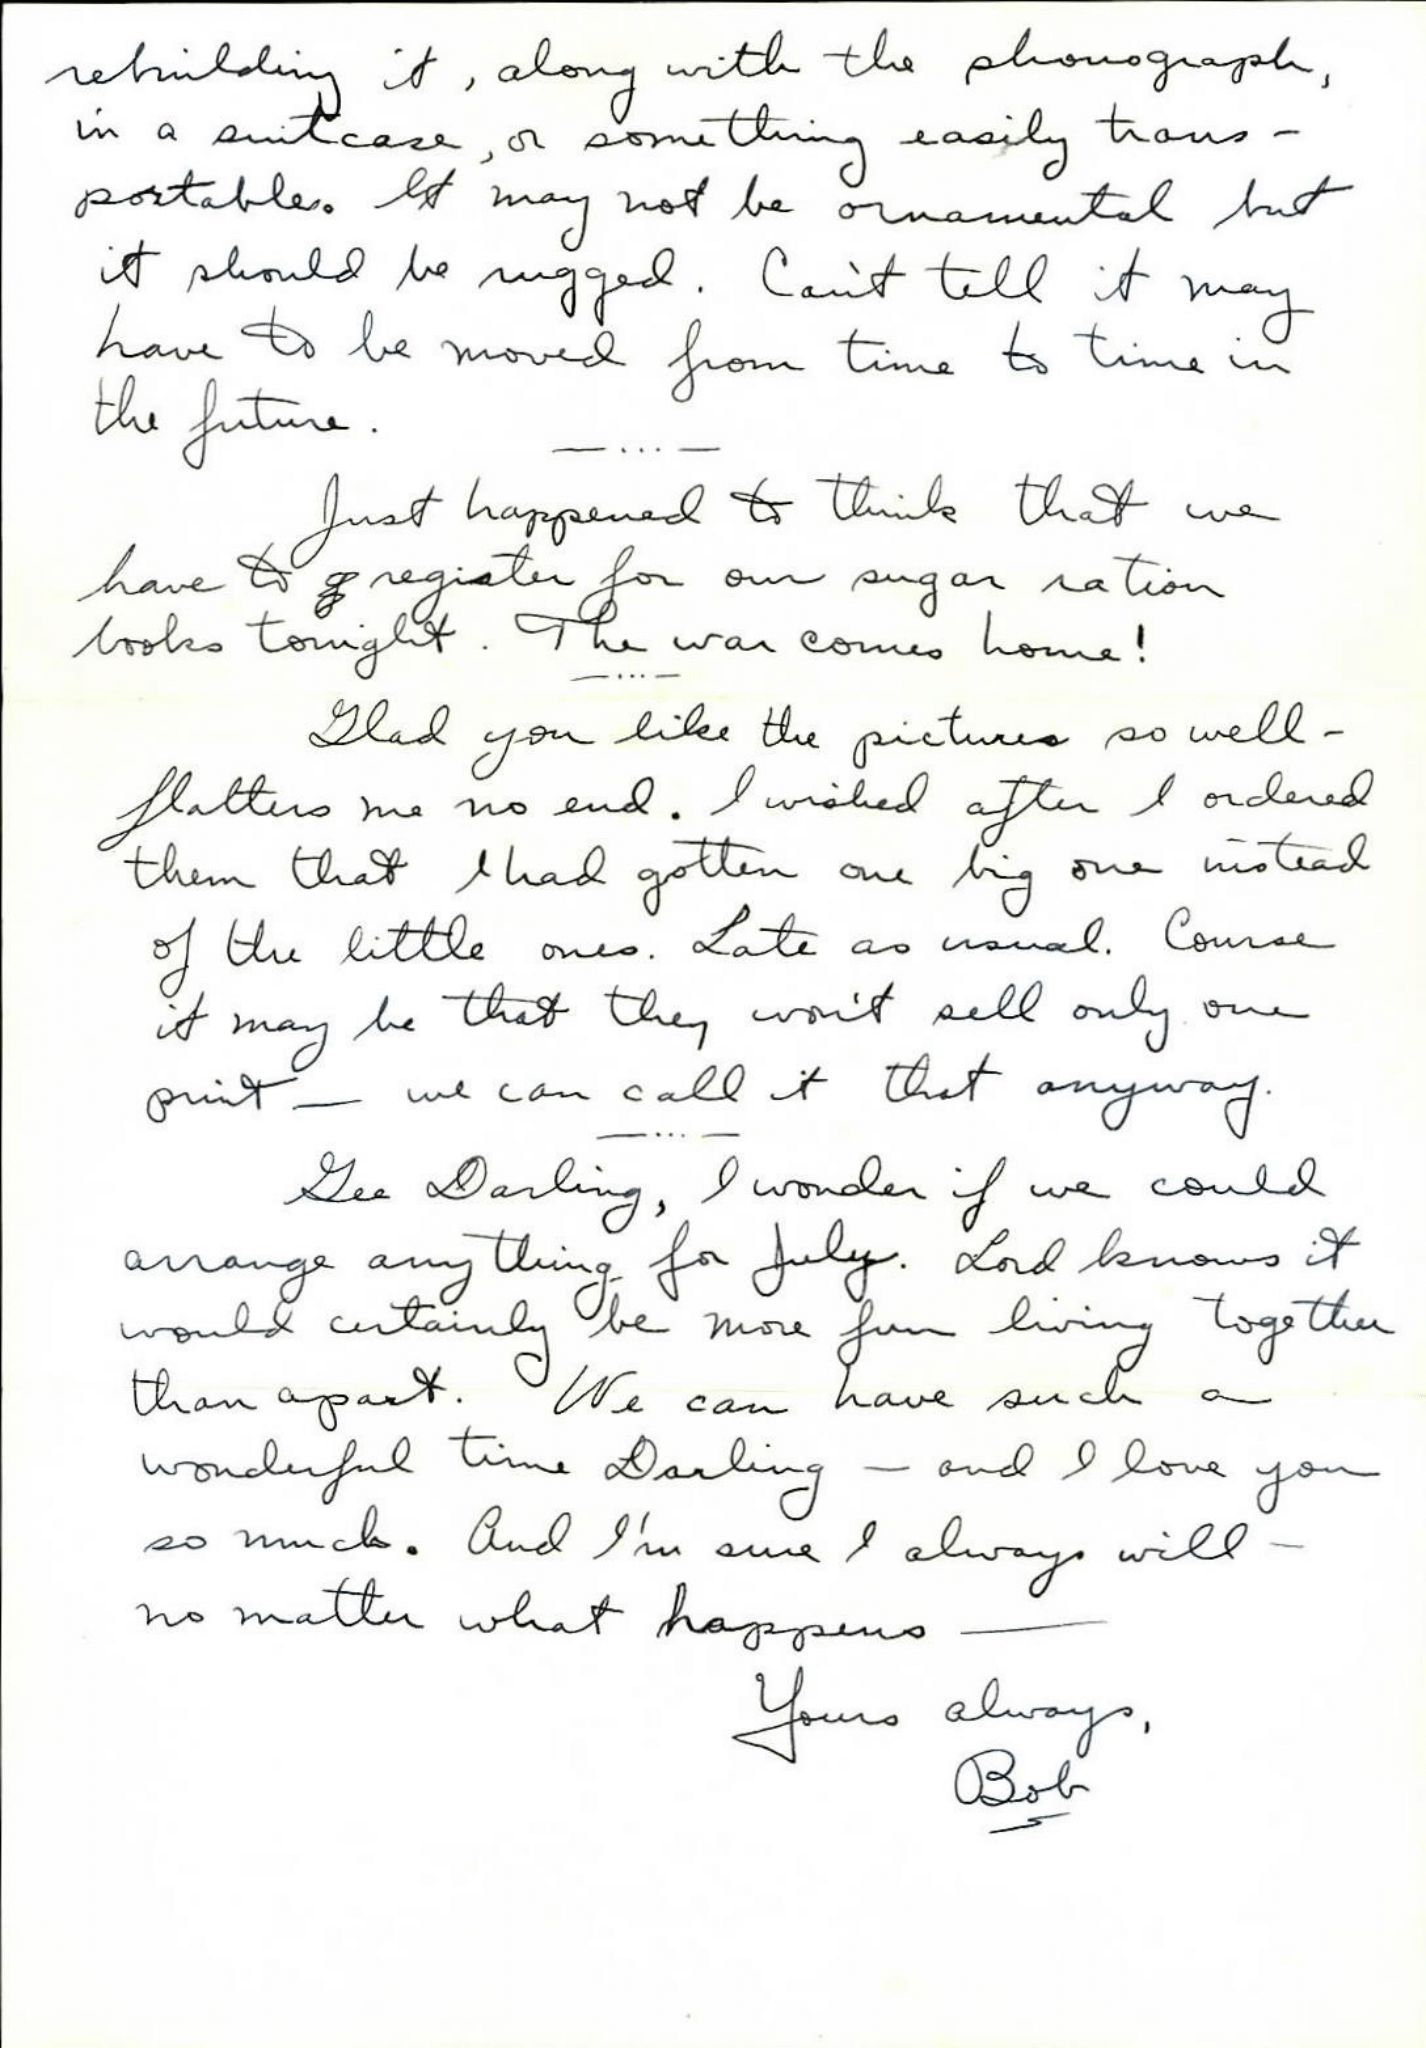 rebuilding it, along with the phonograph,
in a suitcase, or something easily trans-
portable. It may not be ornamental but
it should be rugged. Can't tell it may
have to be moved from time to time in
the future.
— ... —
Just happened to think that we
have to register for our sugar ration
books tonight. The war comes home!
— ... —
Glad you like the pictures so well -
flatters me no end. I wished after I ordered
them that I had gotten one big one instead
of the little ones. Late as usual. Course
it may be that they won't sell only one
print — we can call it that anyway.
— ... —
Gee Darling, I wonder if we could
arrange anything for July. Lord knows it
would certainly be more fun living together
than apart. We can have such a
wonderful time Darling — and I love you
so much. And I'm sure I always will —
no matter what happens —
Yours always,
Bob